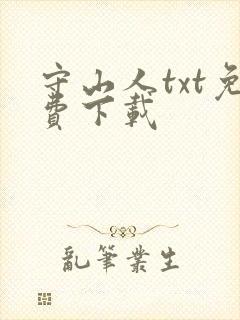 守山人txt免
費下載
亂筆業生